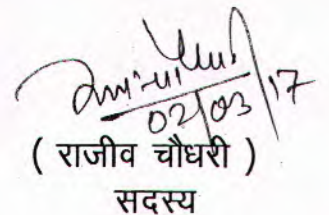 02/03/17
( राजीव चौधरी )
सदस्य